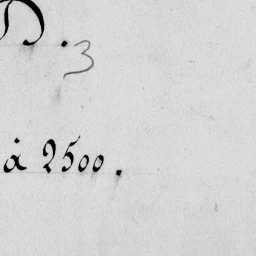 D. 3
à 2500.